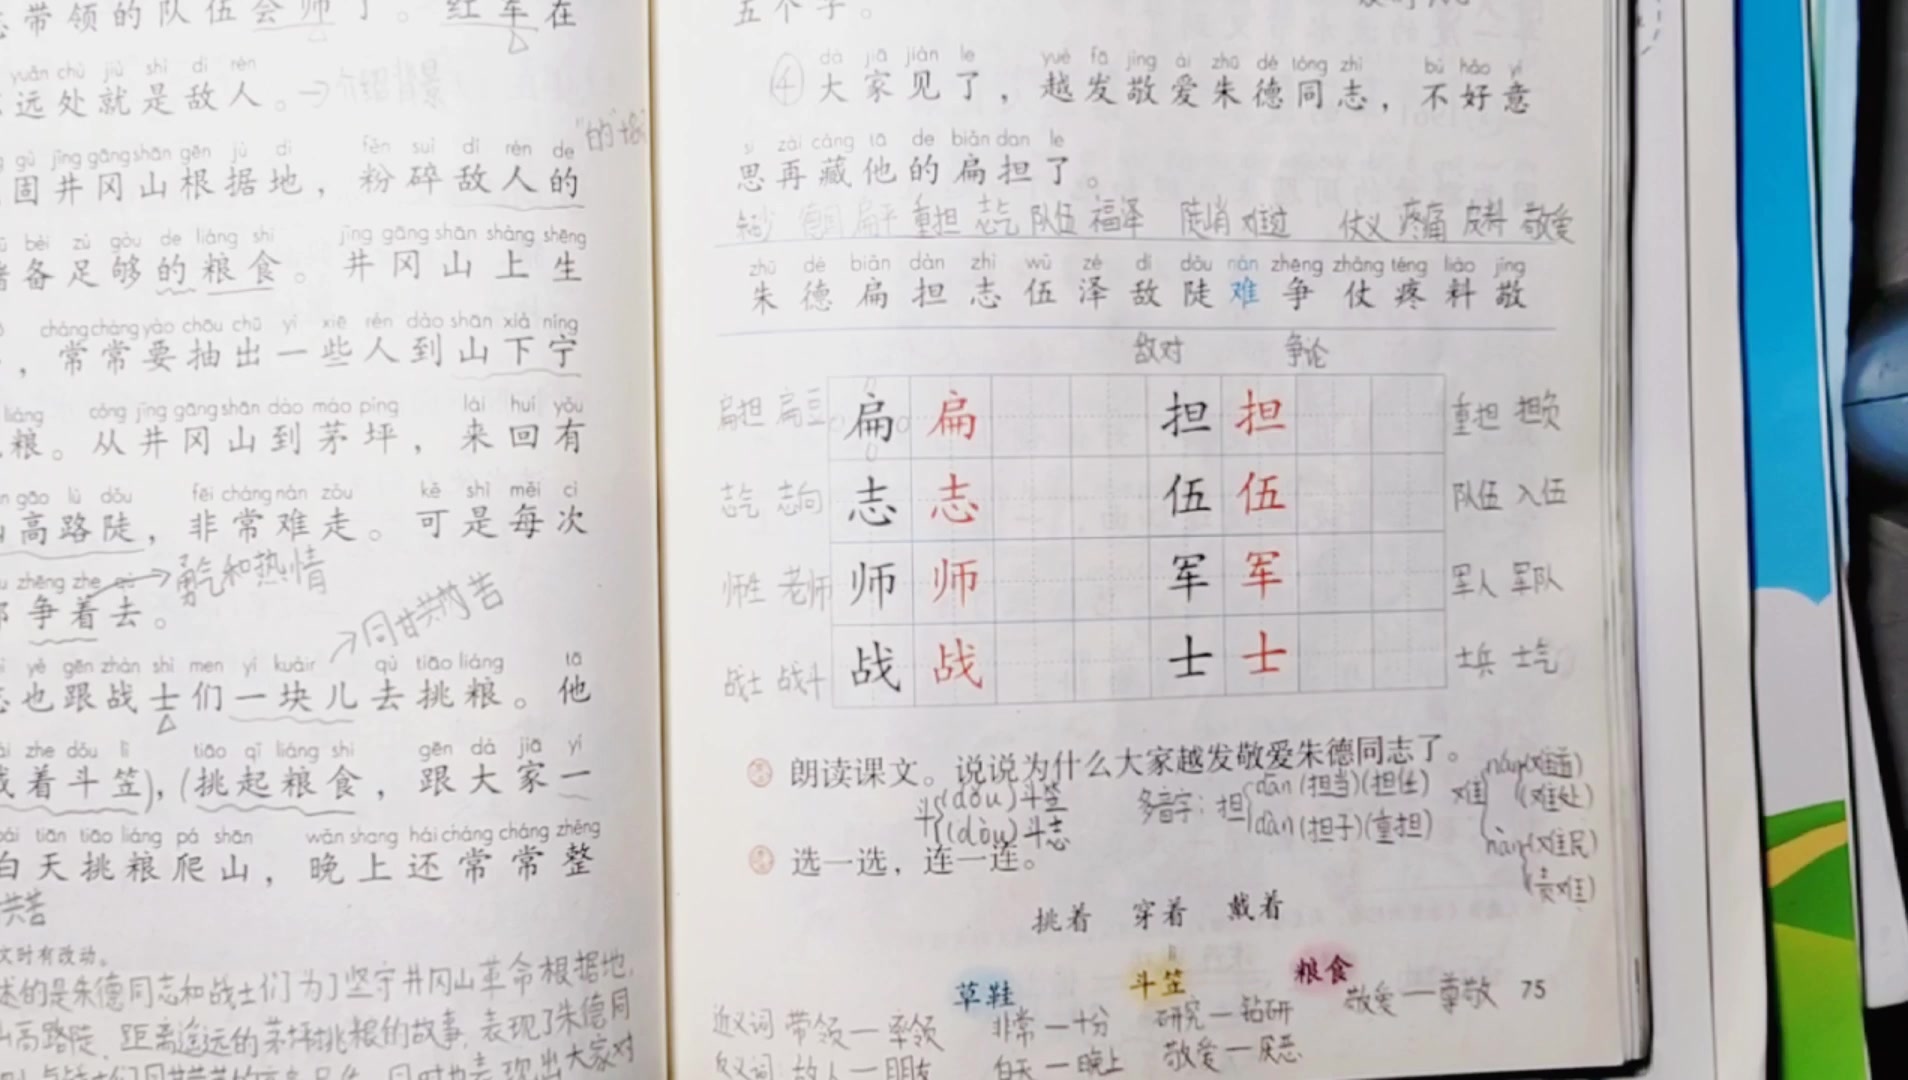 带领的队伍会师了。红军在
yuǎn chù jiù shì dí rén
远处就是敌人。→介绍背景
gù jǐng gāng shān gēn jù dì fěn suì dí rén de
固井冈山根据地，粉碎敌人的
bèi zú gòu de liáng shi jǐng gāng shān shàng shēng
备足够的粮食。井冈山上生
cháng cháng yào chōu chū yì xiē rén dào shān xià níng
，常常要抽出一些人到山下宁
liáng cóng jǐng gāng shān dào máo píng lái huí yǒu
粮。从井冈山到茅坪，来回有
gāo lù dǒu fēi cháng nán zǒu kě shì měi cì
高路陡，非常难走。可是每次
zhēng zhe qù →勇气和热情
争着去。
→同甘共苦
yě gēn zhàn shì men yí kuàir qù tiāo liáng tā
也跟战士们一块儿去挑粮。他
zhe dǒu lì tiāo qǐ liáng shi gēn dà jiā yì
着斗笠，挑起粮食，跟大家一
tiān tiāo liáng pá shān wǎn shang hái cháng cháng zhěng
白天挑粮爬山，晚上还常常整
共苦
文时有改动。
述的是朱德同志和战士们为了坚守井冈山革命根据地，
山高路陡、距离遥远的茅坪挑粮的故事，表现了朱德同
五个字。
dà jiā jiàn le yuè fā jìng ài zhū dé tóng zhì bù hǎo yì
④大家见了，越发敬爱朱德同志，不好意
si zài cáng tā de biǎn dan le
思再藏他的扁担了。
德国 扁平 重担 志气 队伍 福泽 陡峭 难过 仗义 疼痛 敬爱
zhū dé biǎn dàn zhì wǔ zé dí dǒu nán zhēng zhàng téng liào jìng
朱德扁担志伍泽敌陡难争仗疼料敬
敌对 争论
扁担 扁豆 扁 扁 担 担 重担 担负
志气 志向 志 志 伍 伍 队伍 入伍
师生 老师 师 师 军 军 军人 军队
战士 战斗 战 战 士 士 士兵 士气
朗读课文。说说为什么大家越发敬爱朱德同志了。
斗 (dǒu)斗笠
(dòu)斗志
多音字：担 dān(担当)(担任)
dàn(担子)(重担)
难 nán
(难处)
nàn(难民)
选一选，连一连。
挑着 穿着 戴着
草鞋 斗笠 粮食
近义词 带领—率领 非常—十分 研究—钻研 敬爱—尊敬 75
反义词 敌人—朋友 白天—晚上 敬爱—厌恶